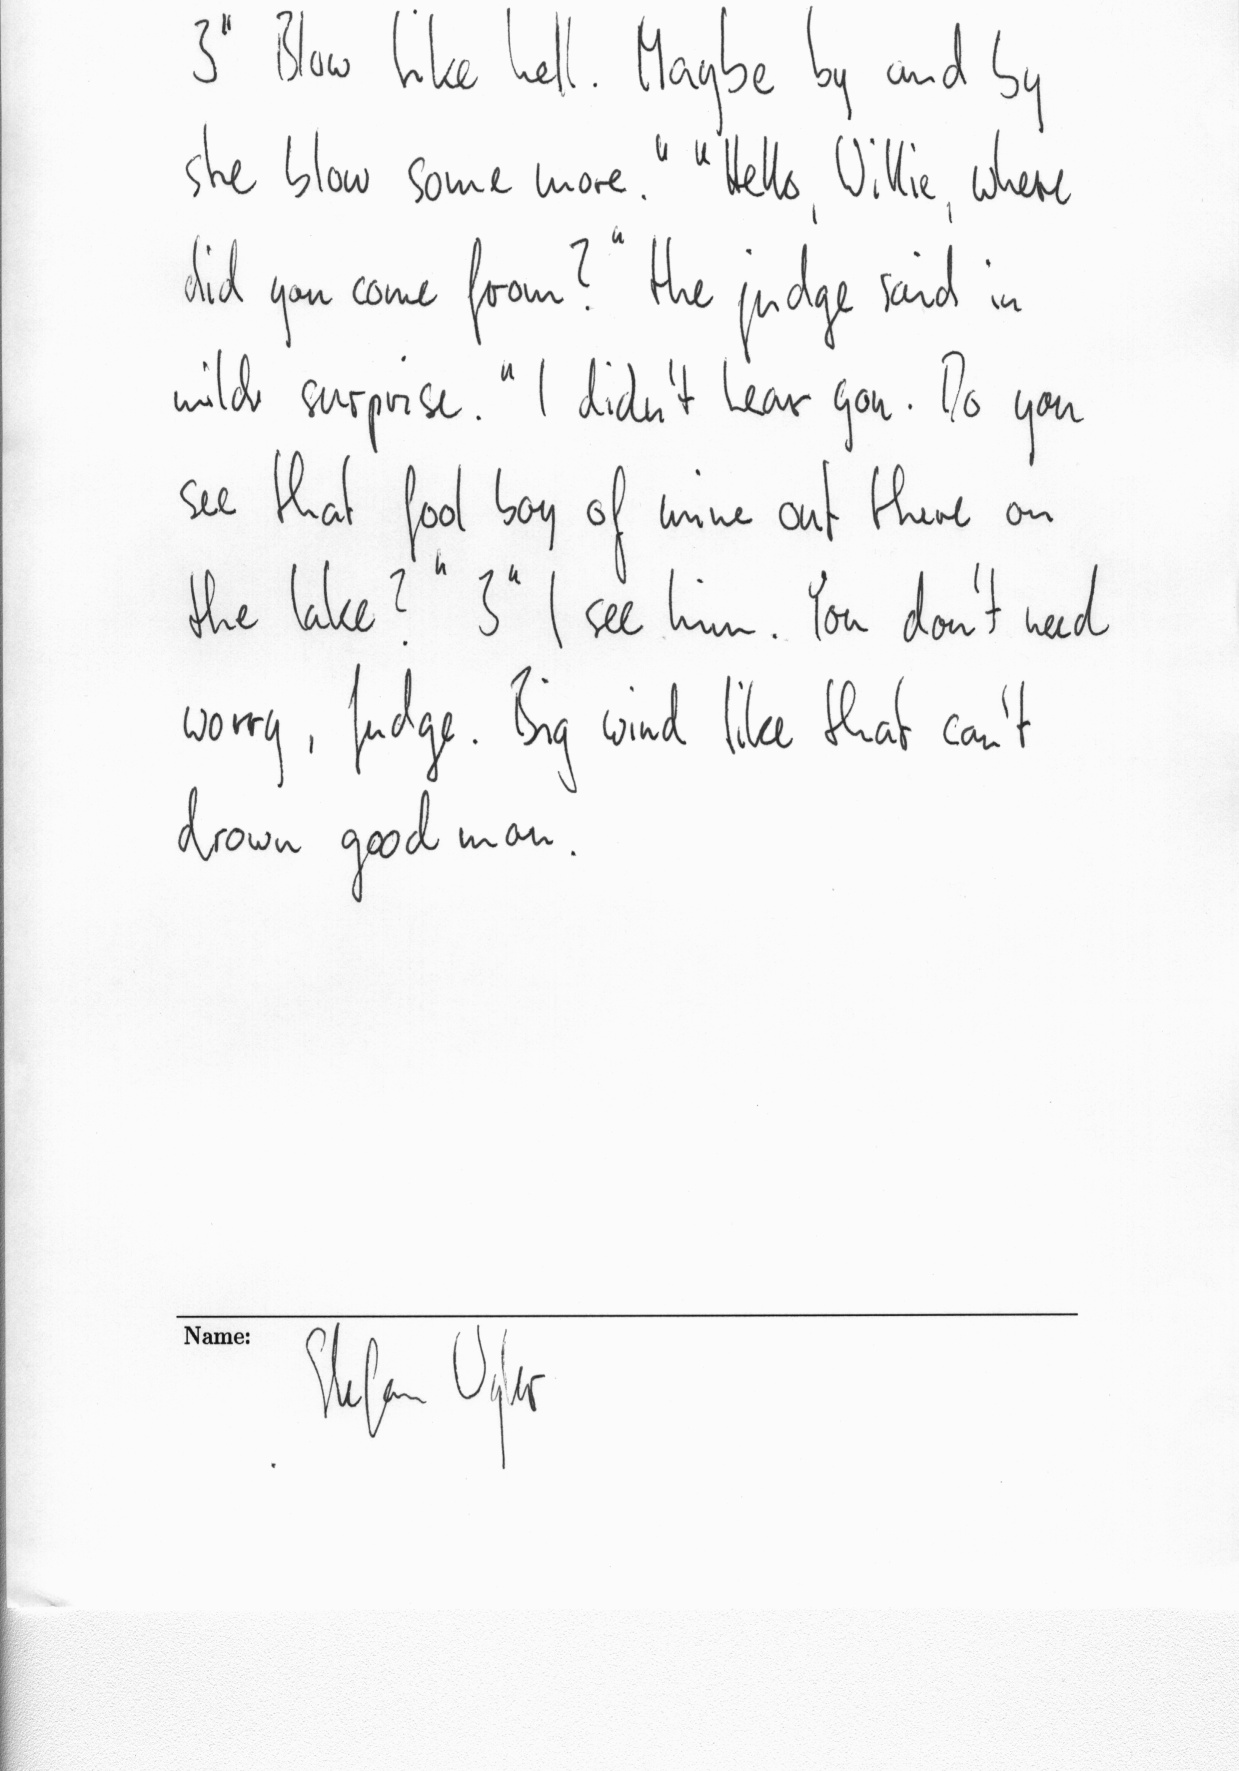 3" Blow like hell. Maybe by and by
she blow some more." "Hello, Willie, where
did you come from?" the judge said in
mild surprise. "I didn't hear you. Do you
see that fool boy of mine out there on
the lake?" 3" I see him. You don't need
worry, Judge. Big wind like that can't
drown good man.
Name:
Stefan